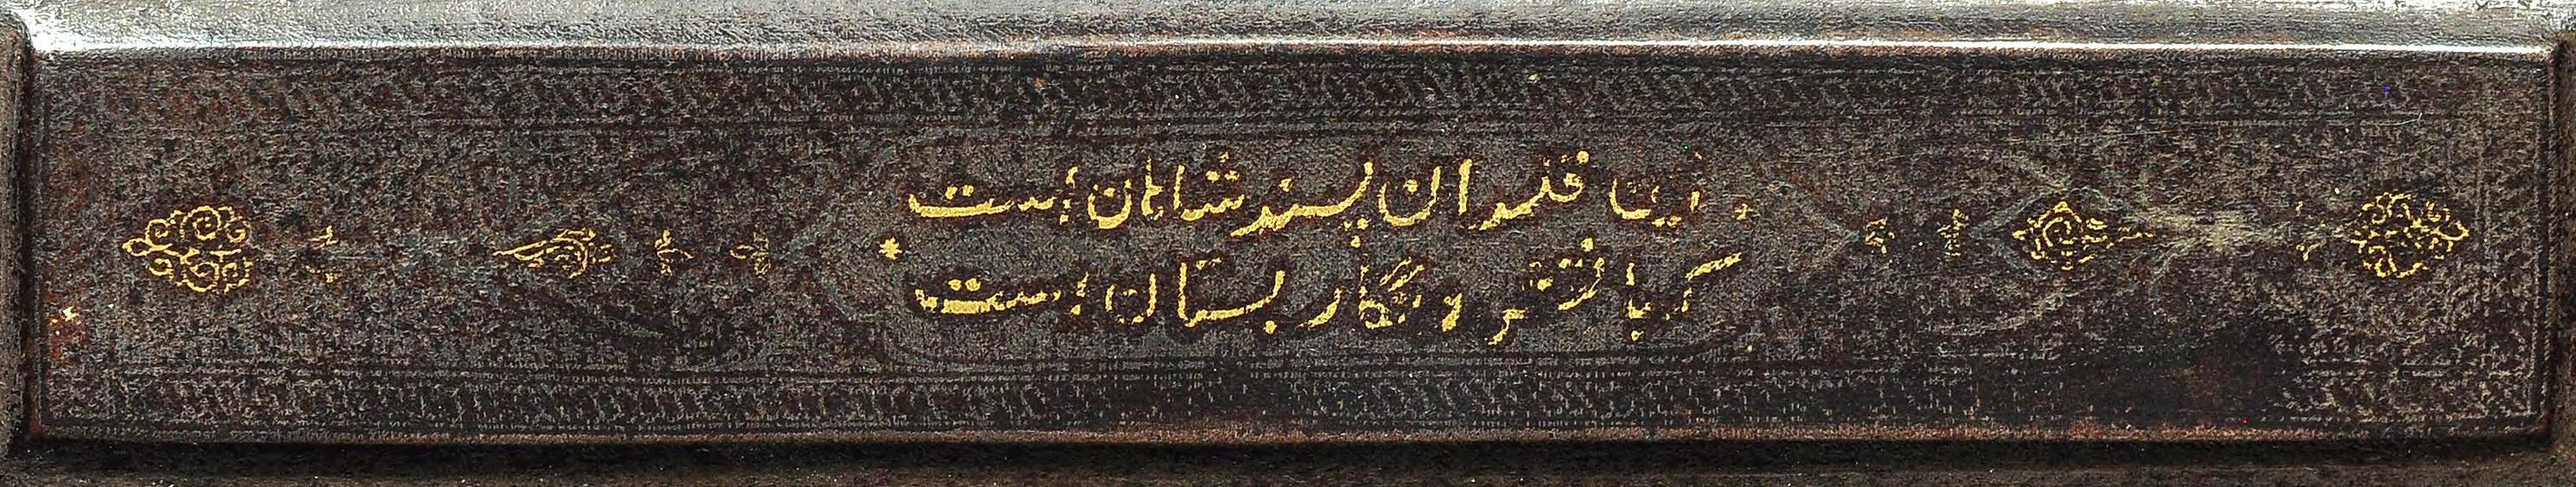 این قلمدان پسند شاهان است
کز با نقش و نگار بستان است